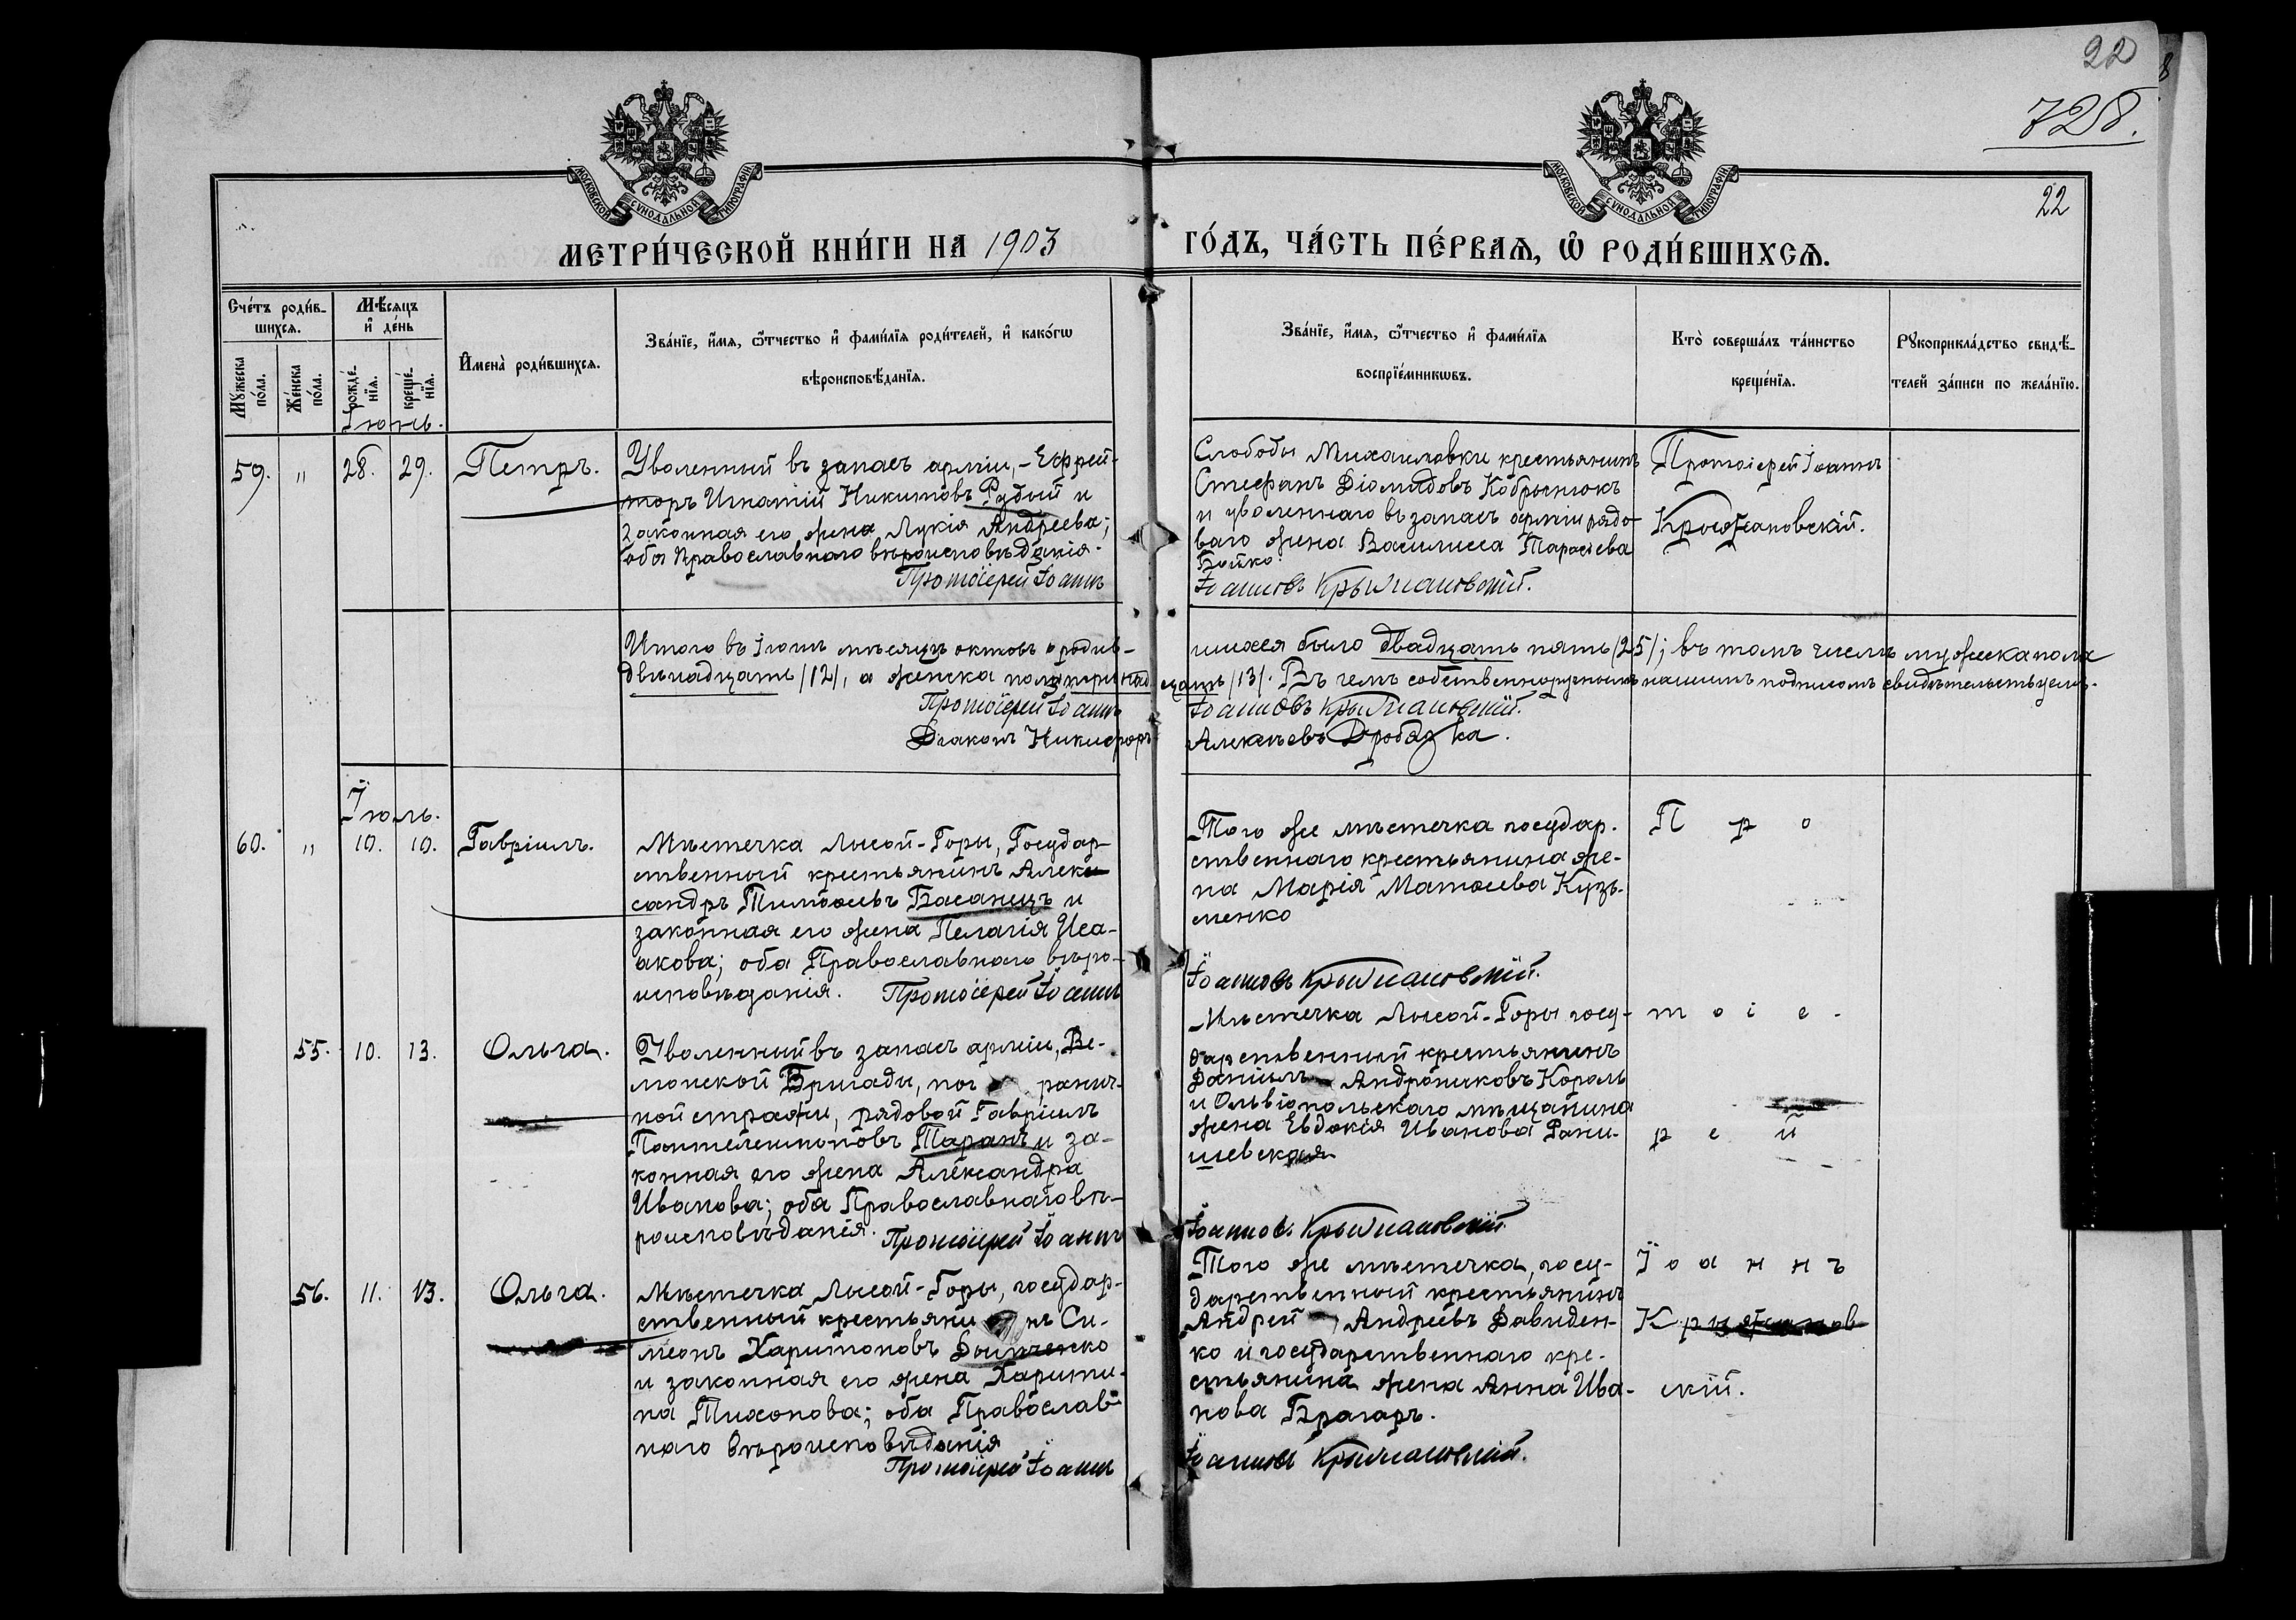 22
728.
22
МОСКОВСКОЙ СѴНОДАЛЬНОЙ ТИПОГРАФІИ.
МОСКОВСКОЙ СѴНОДАЛЬНОЙ ТИПОГРАФІИ.
МЕТРИ́ЧЕСКОЙ КНИ́ГИ НА 1903 ГО́ДЪ, ЧА́СТЬ ПЕ́РВАЯ, Ѡ҆ РОДИ́ВШИХСЯ.
Сче́тъ роди́в-
шихся.
Мѣ́сяцъ
и҆ де́нь
Мꙋ́жеска
по́ла.
Же́нска
по́ла.
рожде́-
нїя.
креще́-
нїя.
И҆мена̀ роди́вшихся.
Зва́нїе, и҆́мя, ѻ҆́тчество и҆ фами́лїя роди́телей, и҆ како́гѡ
вѣроисповѣ́данїя.
Зва́нїе, и҆́мя, ѻ҆́тчество и҆ фами́лїя
воспрїе́мникѡвъ.
Кто̀ соверша́лъ та́инство
креще́нїя.
Рꙋкоприкла́дство свидѣ́-
телей за́писи по жела́нїю.
Іюнь.
59. " 28. 29. Петръ.
Уволенный въ запасъ арміи, - Ефрей-
торъ Игнатій Никитовъ Рудый и
законная его жена Лукія Андреева;
оба Православнаго вѣроисповѣданія.
Протоіерей Іоаннъ
Слободы Михаиловки крестьянинъ
Стефанъ Діомидовъ Кобрынюкъ
и уволеннаго въ запасъ арміи рядо-
ваго жена Василисса Тарасіева
Бойко.
Іоанновъ Крыжановскій.
Протоіерей Іоаннъ
Крыжановскій.
Итого въ Іюнѣ мѣсяцѣ актовъ о родив-
шихся было двадцать пять /25/; въ томъ числѣ мужеска пола
двѣнадцать /12/, а женска пола тринад-
цать /13/. Въ чемъ собственноручнымъ нашимъ подписомъ свидѣтельствуемъ.
Протоіерей Іоаннъ
Іоанновъ Крыжановскій.
Діаконъ Никифоръ
Алексѣевъ Дробязка.
Іюль.
60. " 10. 10. Гавріилъ.
Мѣстечка Лысой-Горы, Государ-
ственный крестьянинъ Алек-
сандръ Тимоѳеевъ Басанецъ и
законная его жена Пелагія Иса-
акова; оба Православнаго вѣро-
исповѣданія. Протоіерей Іоаннъ
Того же мѣстечка государ-
ственнаго крестьянина же-
на Марія Матѳеева Кузь-
менко
Іоанновъ Крыжановскій.
П р о
55. 10. 13. Ольга.
Уволенный въ запасъ арміи, Ве-
монской Бригады, пог ранич-
ной стражи, рядовой Гавріилъ
Пантелеимоновъ Таранъ и за-
конная его жена Александра
Иванова; оба Православнаго вѣ-
роисповѣданія. Протоіерей Іоаннъ
Мѣстечка Лысой-Горы госу-
дарственный крестьянинъ
Даніилъ Андрониковъ Король
и Ольвіопольскаго мѣщанина
жена Евдокія Иванова Рани-
шевская
Іоанновъ Крыжановскій
т о і е -
р е й
56. 11. 13. Ольга.
Мѣстечка Лысой-Горы, государ-
ственный крестьяни нъ Си-
меонъ Харитоновъ
и законная его жена Харити-
на Тихонова; оба Православ-
наго вѣроисповѣданія
Протоіерей Іоаннъ
Того же мѣстечка, госу-
дарственный крестьянинъ
Андрей Андреевъ Давиден-
ко и государственнаго кре-
стьянина жена Анна Ива-
нова Брагаръ.
Іоанновъ Крыжановскій.
І о а н н ъ
Крыжанов
скій.